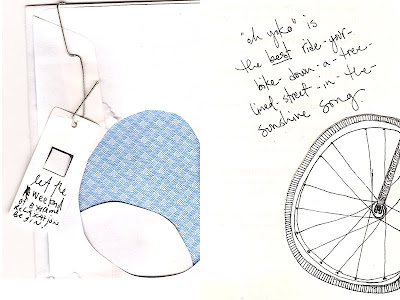 let the
weekend
of extreme
relaxation
begin!
"oh yoko" is
the best ride-your-
bike-down-a-tree-
lined-street-in-the-
sunshine song